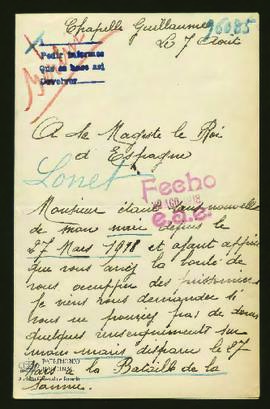 Chapelle Guillaume
96085
Le 7 Aout
Pedir informes
Que se hace asi
Devolver
A Sa Magesté le Roi
d'Espagne
Lonet
Fecho
Monsieur étant sans nouvelle
de mon mari depuis le
27 Mars 1918 et ayant appris
que vous aviez la bonté de
vous occuper des prisonniers
Je viens vous demander si
vous ne pourriez pas me donner
quelques renseignements sur
mon mari disparu le 27
Mars à la Bataille de la
Somme.
PATRIMONIO
NACIONAL